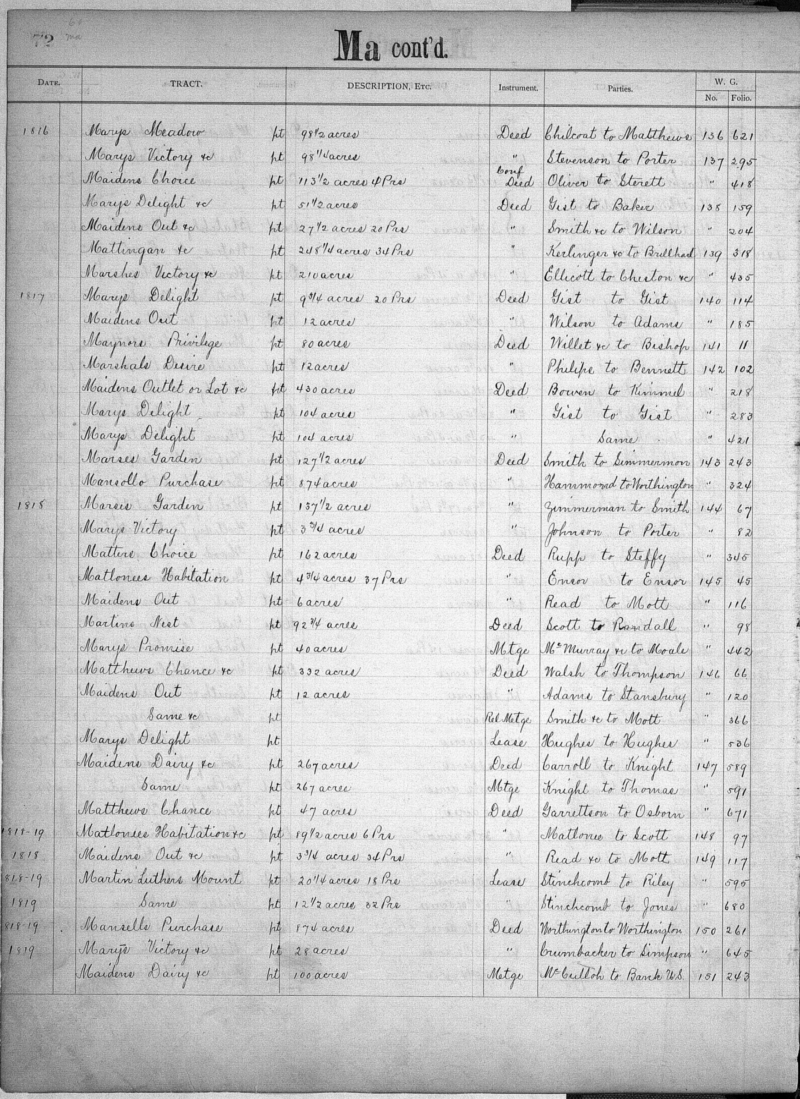 72
Ma cont'd.
DATE. TRACT. DESCRIPTION, ETC. Instrument. Parties. W. G. No. Folio.
1816 Marys Meadow pt 98 1/2 acres Deed Chilcoat to Matthews 136 621
Marys Victory &c pt 98 1/4 acres " Stevenson to Porter 137 295
Maidens Choice pt 113 1/2 acres 4 Prs Conf Deed Oliver to Sterett " 418
Marys Delight &c pt 51 1/2 acres Deed Gist to Baker 138 159
Maidens Out &c pt 27 1/2 acres 20 Prs " Smith &c to Wilson " 204
Mattingan &c pt 248 1/4 acres 34 Prs " Kerlinger &c to Brillhad 139 318
Marshes Victory &c pt 210 acres " Ellicott to Cheston &c " 435
1817 Marys Delight pt 9 3/4 acres 20 Prs Deed Gist to Gist 140 114
Maidens Out pt 12 acres " Wilson to Adams " 185
Maynors Privilege pt 80 acres Deed Willet &c to Bishop 141 11
Marshals Desire pt 12 acres " Philips to Bennett 142 102
Maidens Outlet or Lot &c pt 430 acres Deed Bowen to Kimmel " 218
Marys Delight pt 104 acres " Gist to Gist " 283
Marys Delight pt 104 acres " Same " 421
Marses Garden pt 127 1/2 acres Deed Smith to Simmermon 143 243
Mansollo Purchase pt 874 acres " Hammond to Worthington " 324
1818 Marses Garden pt 137 1/2 acres " Zimmerman to Smith 144 67
Marys Victory pt 3 3/4 acres " Johnson to Porter " 82
Matters Choice pt 162 acres Deed Rupp to Steffy " 345
Matlonies Habitation pt 4 3/4 acres 37 Prs " Ensor to Ensor 145 45
Maidens Out pt 6 acres " Read to Mott " 116
Martins Nest pt 92 3/4 acres Deed Scott to Randall " 98
Marys Promise pt 40 acres Mtge McMurray &c to Moale " 442
Matthews Chance &c pt 332 acres Deed Walsh to Thompson 146 66
Maidens Out pt 12 acres " Adams to Stansbury " 120
Same &c pt Rel Mtge Smith &c to Mott " 366
Marys Delight pt Lease Hughes to Hughes " 536
Maidens Dairy &c pt 267 acres Deed Carroll to Knight 147 589
Same pt 267 acres Mtge Knight to Thomas " 591
Matthews Chance pt 47 acres Deed Garrettson to Osborn " 671
1818-19 Matlonies Habitation &c pt 19 1/2 acres 6 Prs " Matlonie to Scott 148 97
1818 Maidens Out &c pt 3 3/4 acres 34 Prs " Read &c to Mott 149 117
1818-19 Martin Luthers Mount pt 20 1/4 acres 18 Prs Lease Stinchcomb to Riley " 595
1819 Same pt 12 1/2 acres 32 Prs " Stinchcomb to Jones " 680
1818-19 Mansells Purchase pt 874 acres Deed Worthington to Worthington 150 261
1819 Marys Victory &c pt 28 acres " Crumbacker to Simpson " 645
Maidens Dairy &c pt 100 acres Mtge McCulloh to Bank U.S. 151 243